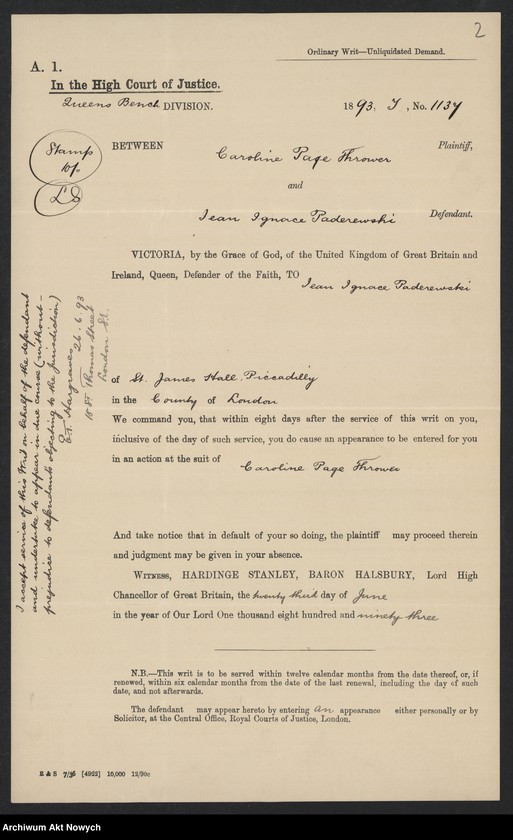 2
Ordinary Writ—Unliquidated Demand.
A. 1.
In the High Court of Justice.
Queens Bench DIVISION.
1893. T, No. 1137
Stamp
10/-
LS
BETWEEN
Caroline Page Thrower
Plaintiff,
and
Jean Ignace Paderewski
Defendant.
VICTORIA, by the Grace of God, of the United Kingdom of Great Britain and
Ireland, Queen, Defender of the Faith, TO
Jean Ignace Paderewski
of St. James Hall. Piccadilly
in the County of London
We command you, that within eight days after the service of this writ on you,
inclusive of the day of such service, you do cause an appearance to be entered for you
in an action at the suit of
Caroline Page Thrower
And take notice that in default of your so doing, the plaintiff may proceed therein
and judgment may be given in your absence.
WITNESS, HARDINGE STANLEY, BARON HALSBURY, Lord High
Chancellor of Great Britain, the twenty third day of June
in the year of Our Lord One thousand eight hundred and ninety three
N.B.—This writ is to be served within twelve calendar months from the date thereof, or, if
renewed, within six calendar months from the date of the last renewal, including the day of such
date, and not afterwards.
The defendant may appear hereto by entering an appearance either personally or by
Solicitor, at the Central Office, Royal Courts of Justice, London.
I accept service of this Writ on behalf of the defendant
and undertake to appear in due course (without
prejudice to defendants objecting to the jurisdiction)
Hargraves 26.6.93
18 St Thomas Street
London S.E.
E & S 7/36 [4922] 10,000 12/90c
Archiwum Akt Nowych